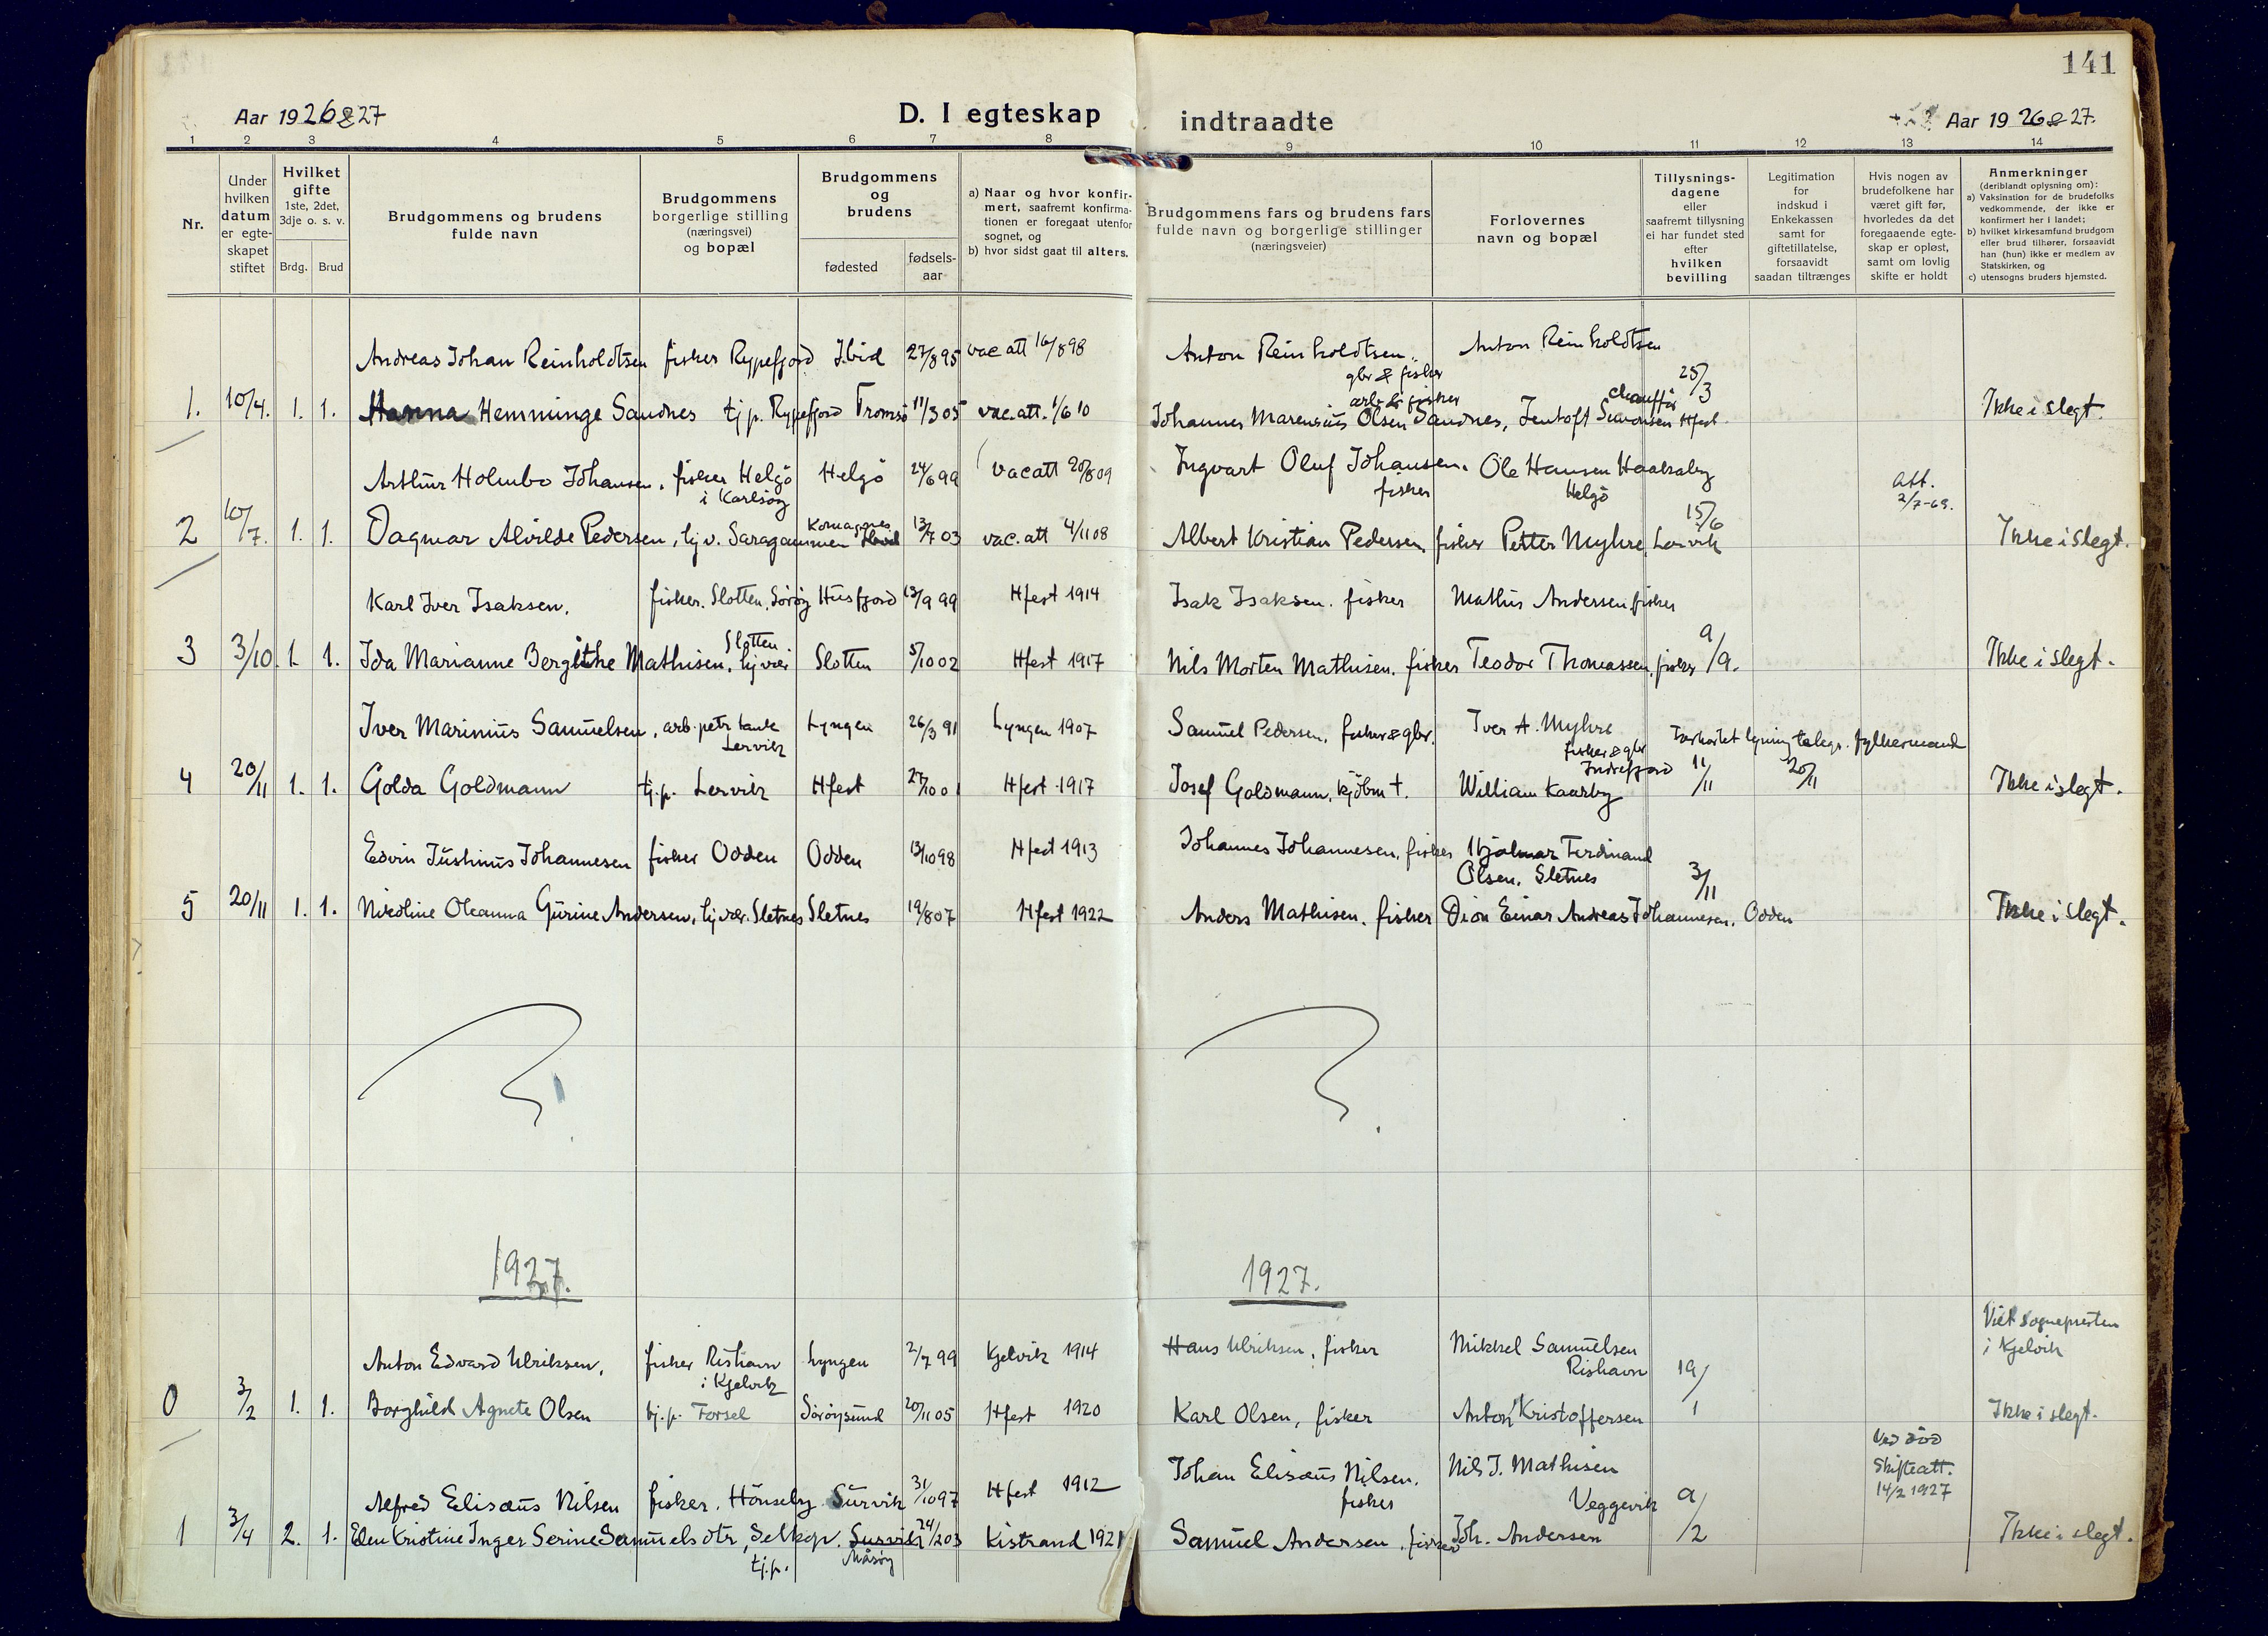 141
Aar 1926 & 27
D. I egteskap
indtraadte
Aar 1926 & 27.
1 2 3 4 5 6 7 8 9 10 11 12 13 14
Nr.
Under hvilken datum er egte-skapet stiftet
Hvilket gifte 1ste, 2det, 3dje o. s. v.
Brdg. Brud
Brudgommens og brudens fulde navn
Brudgommens borgerlige stilling (næringsvei) og bopæl
Brudgommens og brudens
fødested
fødsels-aar
a) Naar og hvor konfir-mert, saafremt konfirma-tionen er foregaat utenfor sognet, og
b) hvor sidst gaat til alters.
Brudgommens fars og brudens fars fulde navn og borgerlige stillinger (næringsveier)
Forlovernes navn og bopæl
Tillysnings-dagene eller saafremt tillysning ei har fundet sted efter hvilken bevilling
Legitimation for indskud i Enkekassen samt for giftetillatelse, forsaavidt saadan tiltrænges
Hvis nogen av brudefolkene har været gift før, hvorledes da det foregaaende egte-skap er opløst, samt om lovlig skifte er holdt
Anmerkninger (deriblandt oplysning om):
a) Vaksination for de brudefolks vedkommende, der ikke er konfirmert her i landet;
b) hvilket kirkesamfund brudgom eller brud tilhører, forsaavidt han (hun) ikke er medlem av Statskirken, og
c) utensogns bruders hjemsted.
Andreas Johan Reinholdtsen fisker Rypefjord Ibid 27/8 95 vac att 16/8 98 Anton Reinholdtsen. gbr & fisker Anton Reinholdtsen
1. 10/4. 1. 1. Hanna Hemminge Sandnes tj p. Rypefjord Tromsø 11/3 05 vac. att. 1/6 10 Johannes Marensius Olsen Sandnes, arb & fisker Jentoft chauffør Hfest 25/3 Ikke i slegt.
Arthur Holmbo Johansen, fisker Helgö i Karlsöy Helgö 24/6 99 vac att 20/8 09 Ingvart Oluf Johansen. fisker Ole Hansen Helgö att. 2/7-69.
2 10/7. 1. 1. Dagmar Alvilde Pedersen, tj v. Saragammen Komagnes 13/7 03 vac. att 4/11 08 Albert Kristian Pedersen, fisker Petter Myhre Lervik 15/6 Ikke i slegt.
Karl Iver Isaksen. fisker. Slotten, Sörøy Husfjord 13/9 99 Hfest 1914 Isak Isaksen. fisker Mathis Andersen fisker
3 3/10. 1. 1. Ida Marianne Bergithe Mathisen, tj vær Slotten Slotten 5/10 02 Hfest 1917 Nils Morten Mathisen. fisker Teodor Thomassen, fisker 9/9. Ikke i slegt.
Iver Marinius Samuelsen, arb. petr tank Lervik Lyngen 26/3 91 Lyngen 1907 Samuel Pedersen, fisker & gbr. Iver A. Myhre fisker & gbr Indrefjord Forkortet lysning telegr. fylkesmand
4 20/11 1. 1. Golda Goldmann tj. p. Lervik Hfest 27/10 0 Hfest 1917 Josef Goldmann, kjöbm †. William Kaarby 11/11 20/11 Ikke i slegt.
Edvin Justinus Johannesen fisker Odden Odden 13/10 98 Hfest 1913 Johannes Johannesen, fisker Hjalmar Ferdinand Olsen. Sletnes
5 20/11 1. 1. Nikoline Oleanna Gurine Andersen, tj vær. Sletnes Sletnes 19/8 07 Hfest 1922 Anders Mathisen. fisker Dion Einar Andreas Johannesen. Odden 3/11 Ikke i slegt.
1927. 1927.
Anton Edvard Ulriksen. fisker Rishavn i Kjelvik Lyngen 2/7 99 Kjelvik 1914 Hans Ulriksen, fisker Mikkel Samuelsen Rishavn Viet sognepresten i Kjelvik
0 3/2 1. 1. Borghild Agnete Olsen tj. p. Forsøl Sörøysund 20/11 05 Hfest 1920 Karl Olsen, fisker Anton Kristoffersen 19/1 Ikke i slegt.
Alfred Elisæus Nilsen fisker. Hönseby Survik 31/10 97 Hfest 1912 Johan Elisæus Nilsen. fisker Nils J. Mathisen Veggevik Ved död Skifteatt. 14/2 1927
1 3/4 2. 1. Elen Kristine Inger Serine Samuelsdtr, Selkop. tj. p. Survik Måsøy 24/2 03 Kistrand 1921 Samuel Andersen, fisker Joh. Andersen 9/2 Ikke i slegt.